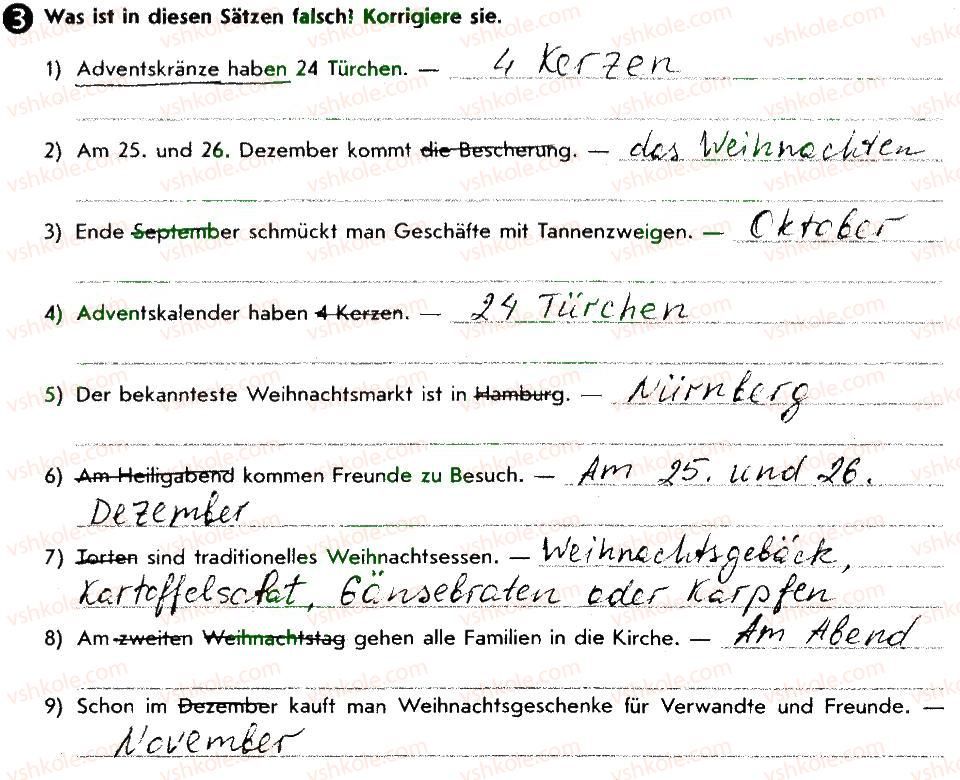 3 Was ist in diesen Sätzen falsch? Korrigiere sie.
1) Adventskränze haben 24 Türchen. — 4 Kerzen
2) Am 25. und 26. Dezember kommt die Bescherung. — das Weihnachten
3) Ende September schmückt man Geschäfte mit Tannenzweigen. — Oktober
4) Adventskalender haben 4 Kerzen. — 24 Türchen
5) Der bekannteste Weihnachtsmarkt ist in Hamburg. — Nürnberg
6) Am Heiligabend kommen Freunde zu Besuch. — Am 25. und 26.
Dezember
7) Torten sind traditionelles Weihnachtsessen. — Weihnachtsgebäck,
Kartoffelsalat, Gänsebraten oder Karpfen
8) Am zweiten Weihnachtstag gehen alle Familien in die Kirche. — Am Abend
9) Schon im Dezember kauft man Weihnachtsgeschenke für Verwandte und Freunde. —
November